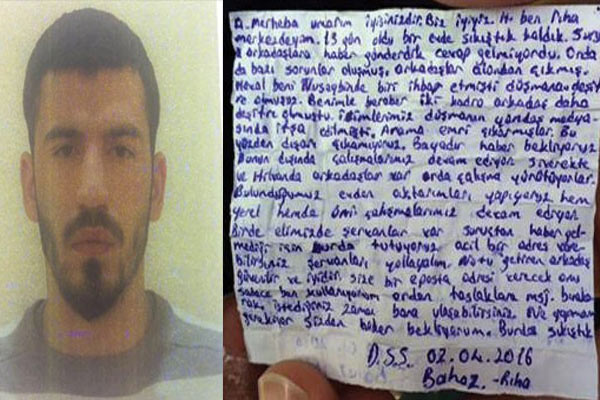 A. merheba umarım iyisinizdir. Biz iyiyiz. H. ben Riha
merkezdeyım. 13 gün oldu bir evde sıkıştık kaldık. Suruç
arkadaşlara haber gönderdik cevap gelmiyordu. Orda
da bazı sorunlar oluşmuş, arkadaşlar alandan çıkmış.
Heval beni Nusaybinde biri ihbar etmişti düşmana. deşif
re olmuşuz. Benimle beraber iki kadro arkadaş daha
deşifre olmuştu. İsimlerimiz düşmanın yandaş medya
sında ifşa edilmişti. Arama emri çıkarmışlar. Bu
yüzden dışarı çıkamıyoruz. Bayadır haber bekliyoruz
Bunun dışında çalışmalarımız devam ediyor. Siverekte
ve Hilvanda arkadaşlar var orda çalışma yürütüyorlar.
Bulunduğumuz evden aktarımları yapıyoruz hem
yerel hemde çalışmalarımız devam ediyor
Birde elimizde şervanlar var suruçtan haber gel
mediği için burda tutuyoruz acil bir adres vere
bilirseniz şervanları yollayalım. Notu getiren arkadaş
güvenilir ve iyidir. size bir eposta adresi verecek onu
sadece ben kullanıyorum ordan taslaklara msj. bıraka
rak istediğiniz zaman bana ulaşabilirsiniz. Ne yapmam
gerekiyor sizden haber bekliyorum. Burda sıkıştık
D.S.S. 02.04.2016
Bahoz - Riha